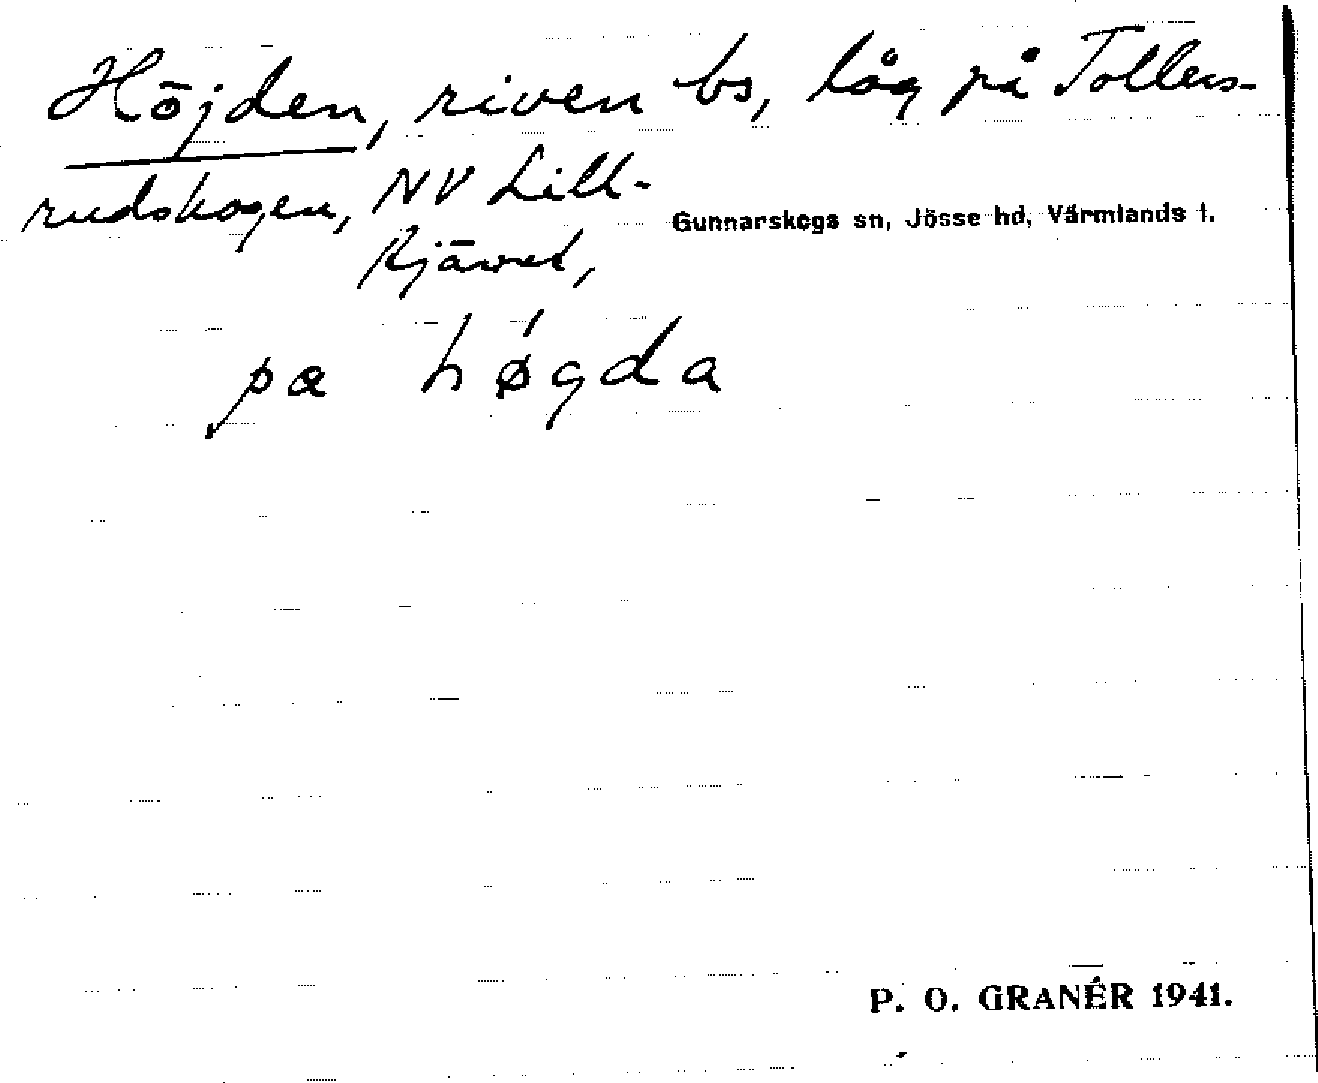 Höjden, riven bs, låg på Tollers-
rudskogen, NV Lill-
Gunnarskogs sn, Jösse hd, Värmlands l.
Kjärret,
pa høgda
P. O. GRANÉR 1941.